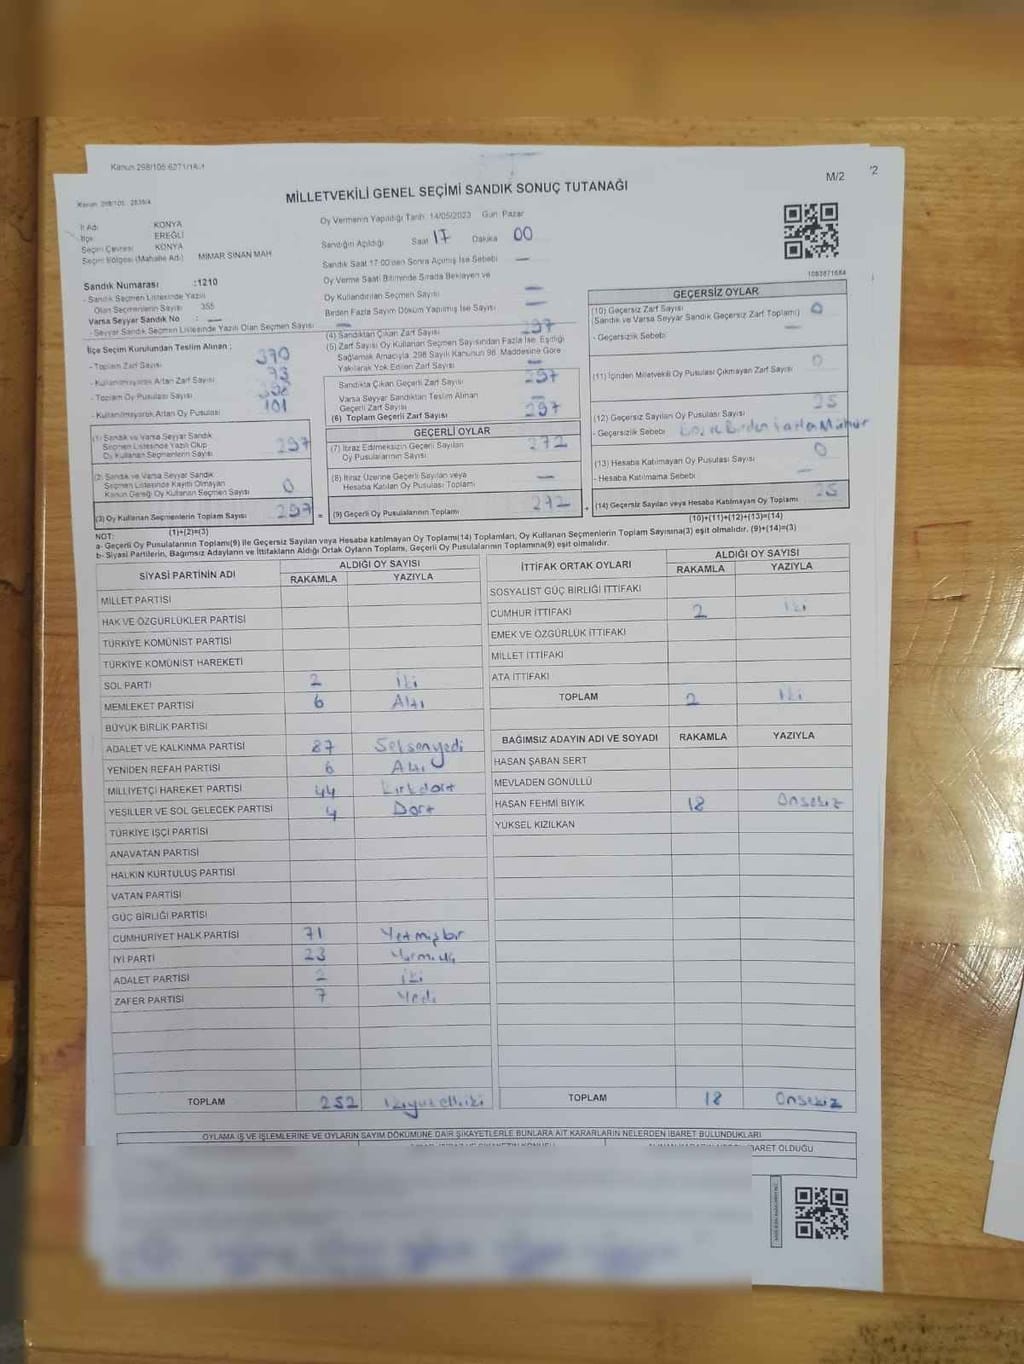 Kanun 298/105 6271/1A-1
'2
M/2
MİLLETVEKİLİ GENEL SEÇİMİ SANDIK SONUÇ TUTANAĞI
Kanun 298/105
İl Adı KONYA
İlçe EREĞLİ
Seçim Çevresi KONYA
Seçim Bölgesi (Mahalle Adı) MİMAR SİNAN MAH
Oy Vermenin Yapıldığı Tarih: 14/05/2023 Gün: Pazar
Sandığın Açıldığı Saat 17 Dakika 00
Sandık Saat 17:00'den Sonra Açılmış İse Sebebi —
Oy Verme Saati Bitiminde Sırada Bekleyen ve
Oy Kullandırılan Seçmen Sayısı —
Birden Fazla Sayım Döküm Yapılmış İse Sayısı —
1083871684
Sandık Numarası :1210
- Sandık Seçmen Listesinde Yazılı
Olan Seçmenlerin Sayısı 355
Varsa Seyyar Sandık No : —
- Seyyar Sandık Seçmen Listesinde Yazılı Olan Seçmen Sayısı —
İlçe Seçim Kurulundan Teslim Alınan :
- Toplam Zarf Sayısı 370
- Kullanılmayarak Artan Zarf Sayısı 73
- Toplam Oy Pusulası Sayısı
- Kullanılmayarak Artan Oy Pusulası 101
(1) Sandık ve Varsa Seyyar Sandık
Seçmen Listesinde Yazılı Olup
Oy Kullanan Seçmenlerin Sayısı 297
(2) Sandık ve Varsa Seyyar Sandık
Seçmen Listesinde Kayıtlı Olmayan
Kanun Gereği Oy Kullanan Seçmen Sayısı 0
(3) Oy Kullanan Seçmenlerin Toplam Sayısı 297 =
(1)+(2)=(3)
(4) Sandıktan Çıkan Zarf Sayısı 297
(5) Zarf Sayısı Oy Kullanan Seçmen Sayısından Fazla İse, Eşitliği
Sağlamak Amacıyla, 298 Sayılı Kanunun 98. Maddesine Göre
Yakılarak Yok Edilen Zarf Sayısı —
Sandıkta Çıkan Geçerli Zarf Sayısı 297
Varsa Seyyar Sandıktan Teslim Alınan
Geçerli Zarf Sayısı —
(6) Toplam Geçerli Zarf Sayısı 297
GEÇERLİ OYLAR
(7) İtiraz Edilmeksizin Geçerli Sayılan
Oy Pusulalarının Sayısı 272
(8) İtiraz Üzerine Geçerli Sayılan veya
Hesaba Katılan Oy Pusulası Toplamı —
(9) Geçerli Oy Pusulalarının Toplamı 272 +
GEÇERSİZ OYLAR
(10) Geçersiz Zarf Sayısı
(Sandık ve Varsa Seyyar Sandık Geçersiz Zarf Toplamı) 0
- Geçersizlik Sebebi —
(11) İçinden Milletvekili Oy Pusulası Çıkmayan Zarf Sayısı 0
(12) Geçersiz Sayılan Oy Pusulası Sayısı 25
- Geçersizlik Sebebi Birden Fazla Mühür
(13) Hesaba Katılmayan Oy Pusulası Sayısı 0
- Hesaba Katılmama Sebebi —
(14) Geçersiz Sayılan veya Hesaba Katılmayan Oy Toplamı 25
(10)+(11)+(12)+(13)=(14)
NOT:
a- Geçerli Oy Pusulalarının Toplamı(9) ile Geçersiz Sayılan veya Hesaba katılmayan Oy Toplamı(14) Toplamları, Oy Kullanan Seçmenlerin Toplam Sayısına(3) eşit olmalıdır. (9)+(14)=(3)
b- Siyasi Partilerin, Bağımsız Adayların ve İttifakların Aldığı Ortak Oyların Toplamı, Geçerli Oy Pusulalarının Toplamına(9) eşit olmalıdır.
SİYASİ PARTİNİN ADI ALDIĞI OY SAYISI
RAKAMLA YAZIYLA
MİLLET PARTİSİ
HAK VE ÖZGÜRLÜKLER PARTİSİ
TÜRKİYE KOMÜNİST PARTİSİ
TÜRKİYE KOMÜNİST HAREKETİ
SOL PARTİ 2 iki
MEMLEKET PARTİSİ 6 Altı
BÜYÜK BİRLİK PARTİSİ
ADALET VE KALKINMA PARTİSİ 87 Seksenyedi
YENİDEN REFAH PARTİSİ 6 Altı
MİLLİYETÇİ HAREKET PARTİSİ 44 Kırkdört
YEŞİLLER VE SOL GELECEK PARTİSİ 4 Dört
TÜRKİYE İŞÇİ PARTİSİ
ANAVATAN PARTİSİ
HALKIN KURTULUŞ PARTİSİ
VATAN PARTİSİ
GÜÇ BİRLİĞİ PARTİSİ
CUMHURİYET HALK PARTİSİ 71 Yetmişbir
İYİ PARTİ 23 Yirmiüç
ADALET PARTİSİ 2 iki
ZAFER PARTİSİ 7 Yedi
TOPLAM 252 ikiyüzelliiki
İTTİFAK ORTAK OYLARI ALDIĞI OY SAYISI
RAKAMLA YAZIYLA
SOSYALİST GÜÇ BİRLİĞİ İTTİFAKI
CUMHUR İTTİFAKI 2 iki
EMEK VE ÖZGÜRLÜK İTTİFAKI
MİLLET İTTİFAKI
ATA İTTİFAKI
TOPLAM 2 iki
BAĞIMSIZ ADAYIN ADI VE SOYADI RAKAMLA YAZIYLA
HASAN ŞABAN SERT
MEVLADEN GÖNÜLLÜ
HASAN FEHMİ BIYIK 18 Onsekiz
YÜKSEL KIZILKAN
TOPLAM 18 Onsekiz
OYLAMA İŞ VE İŞLEMLERİNE VE OYLARIN SAYIM DÖKÜMÜNE DAİR ŞİKAYETLERLE BUNLARA AİT KARARLARIN NELERDEN İBARET BULUNDUKLARI
İBARET OLDUĞU